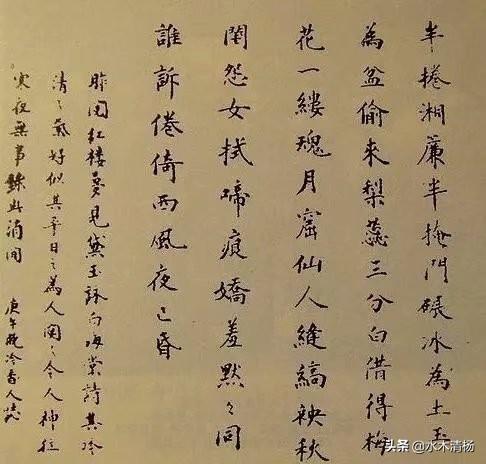 半捲湘簾半掩門碾冰為土玉
為盆偷來梨蕊三分白借得梅
花一縷魂月窟仙人縫縞袂秋
閨怨女拭啼痕嬌羞默々同
誰訴倦倚西風夜已昏
昨閱紅樓夢見黛玉詠白海棠詩其冷
清之氣好似其平日之為人閱之令人神往
寒夜無事錄此消閒
庚午晚冷香人
头条 @水木清杨